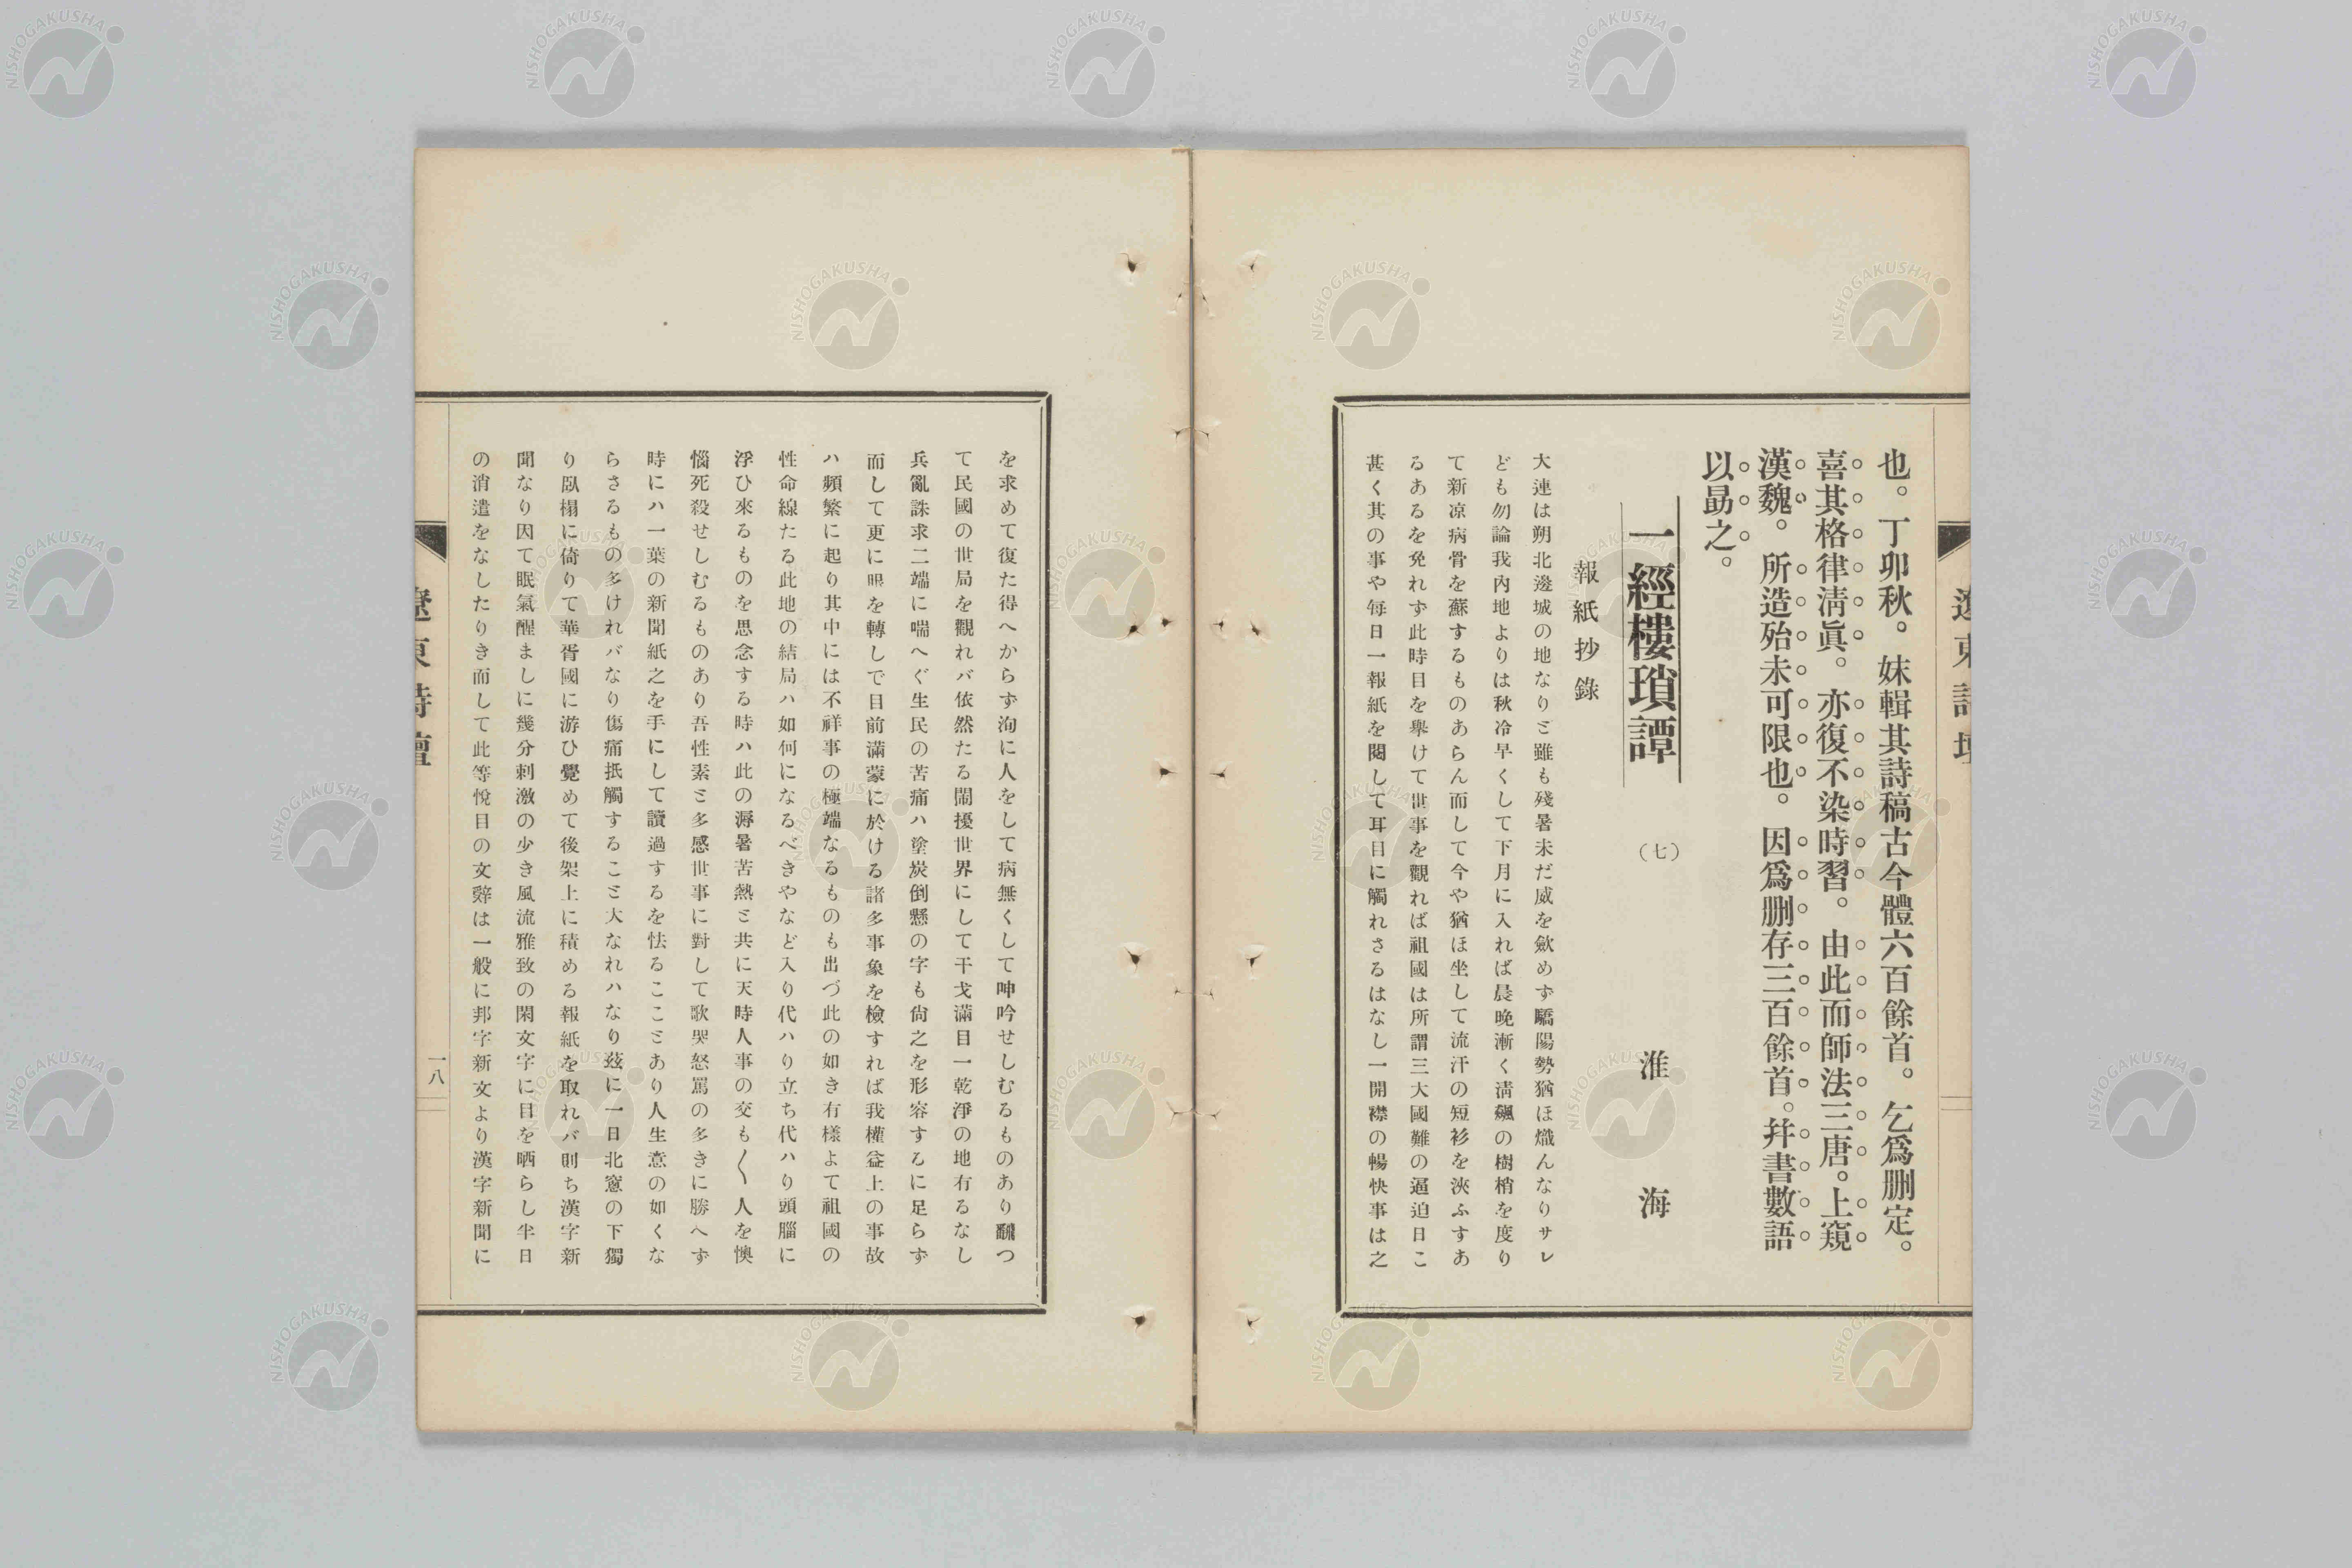 也。丁卯秋。妹輯其詩稿古今體六百餘首。乞爲删定。
喜其格律淸眞。亦復不染時習。由此而師法三唐。上窺
漢魏。所造殆未可限也。因爲删存三百餘首。幷書數語
以勗之。
一經樓瑣譚
(七)
淮海
報紙抄錄
大連は朔北邊城の地なりと雖も殘暑未だ威を斂めず驕陽勢猶ほ熾んなりサレ
ども勿論我內地よりは秋冷早くして下月に入れば晨晚漸く淸飆の樹梢を度り
て新凉病骨を蘇するものあらん而して今や猶ほ坐して流汗の短衫を浹ふすあ
るあるを免れず此時目を擧けて世事を觀れば祖國は所謂三大國難の逼迫日こ
甚く其の事や每日一報紙を閱して耳目に觸れさるはなし一開襟の暢快事は之
を求めて復た得へからず洵に人をして病無くして呻吟せしむるものあり飜つ
て民國の世局を觀れバ依然たる鬧擾世界にして干戈滿目一乾淨の地有るなし
兵亂誅求二端に喘へぐ生民の苦痛ハ塗炭倒懸の字も尙之を形容するに足らず
而して更に眼を轉しで目前滿蒙に於ける諸多事象を檢すれば我權益上の事故
ハ頻繁に起り其中には不祥事の極端なるものも出づ此の如き有樣よて祖國の
性命線たる此地の結局ハ如何になるべきやなど入り代ハり立ち代ハり頭腦に
浮ひ來るものを思念する時ハ此の溽暑苦熱と共に天時人事の交も〱人を懊
惱死殺せしむるものあり吾性素と多感世事に對して歌哭怒罵の多きに勝へず
時にハ一葉の新聞紙之を手にして讀過するを怯るここともあり人生意の如くな
らさるもの多けれバなり傷痛抵觸すること大なれハなり玆に一日北窻の下獨
り臥榻に倚りて華胥國に游ひ覺めて後架上に積める報紙を取れバ則ち漢字新
聞なり因て眠氣醒ましに幾分刺激の少き風流雅致の閑文字に目を晒らし半日
の消遣をなしたりき而して此等悅目の文辭は一般に邦字新文より漢字新聞に
遼東詩壇
一八